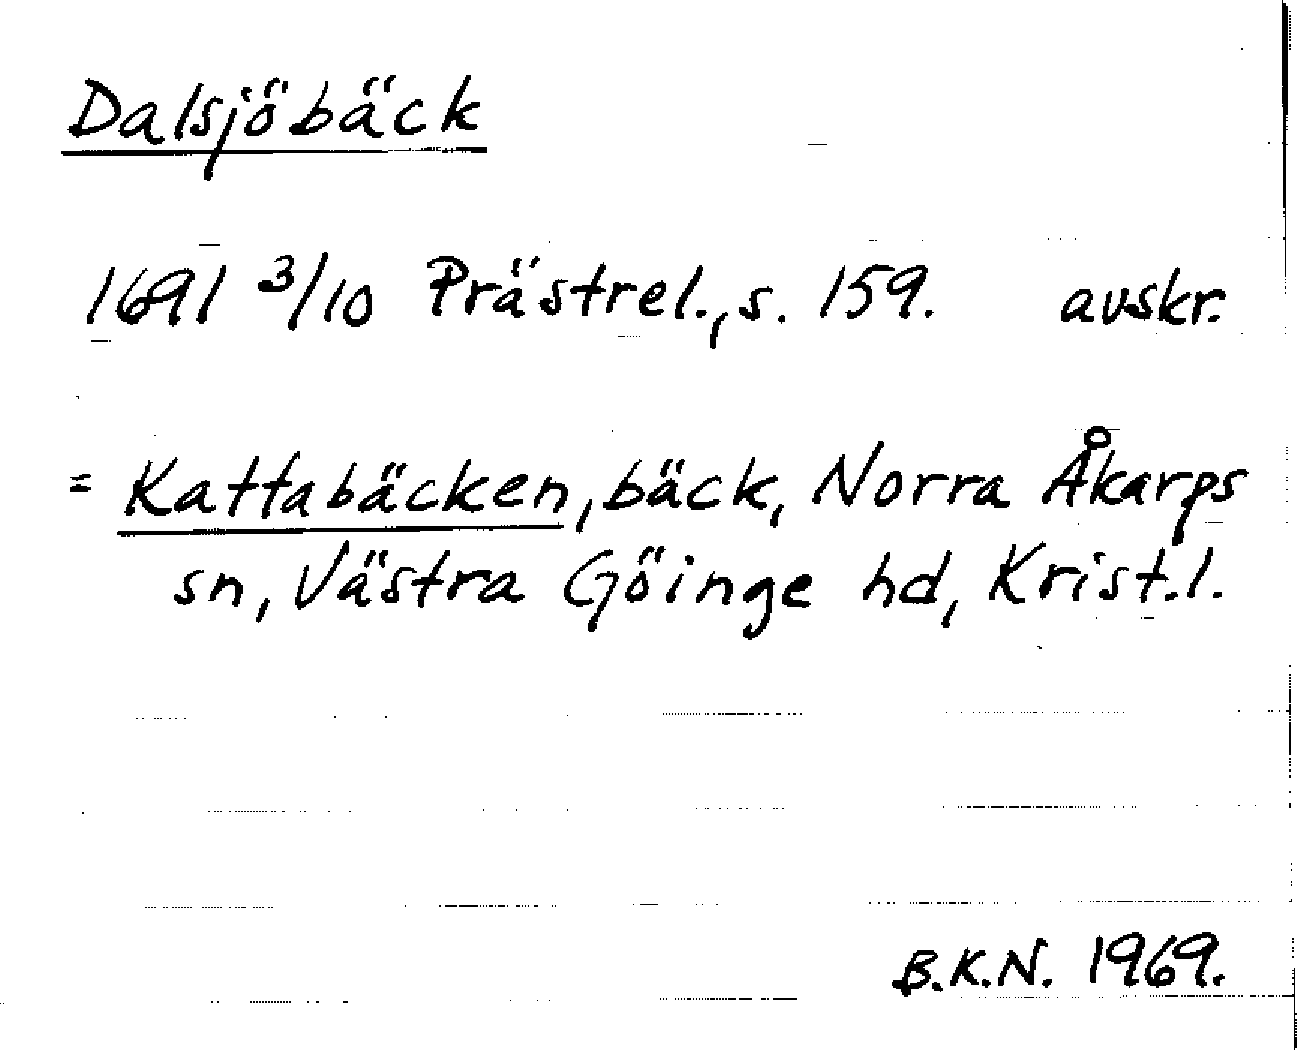 Dalsjöbäck
1691 3/10 Prästrel., s. 159. avskr.
= Kattabäcken, bäck, Norra Åkarps
sn, Västra Göinge hd, Krist.l.
B.K.N. 1969.